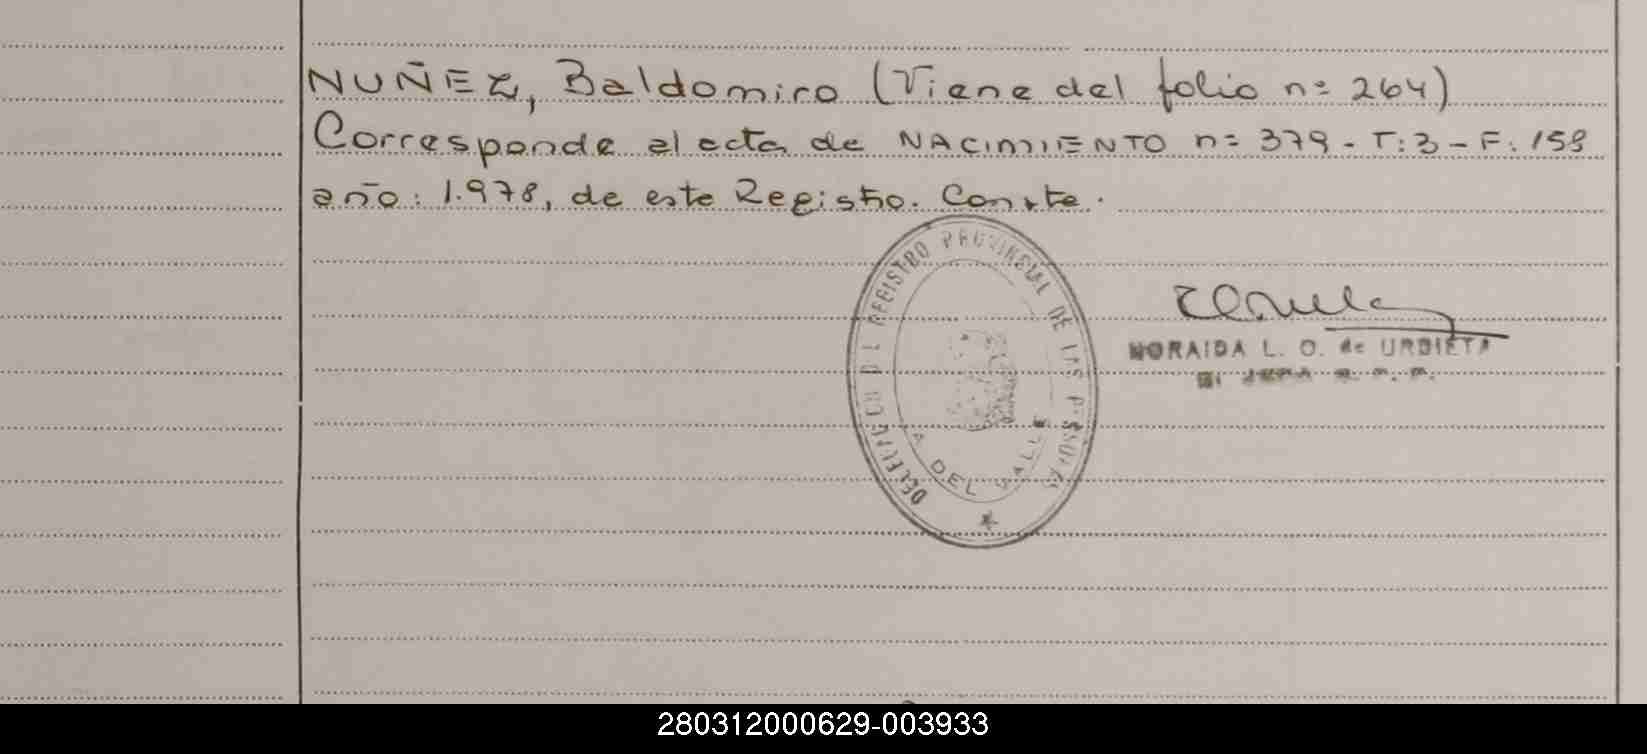 NUÑEZ, Baldomiro (Viene del folio nº 264)
Corresponde al acta de NACIMIENTO nº 379 - T: 3 - F: 158
año: 1.978, de este Registro. Conste.
REGISTRO PROVINCIAL DE LAS PERSONAS
DEL VALLE
NORAIDA L. O. de URBIETA
280312000629-003933